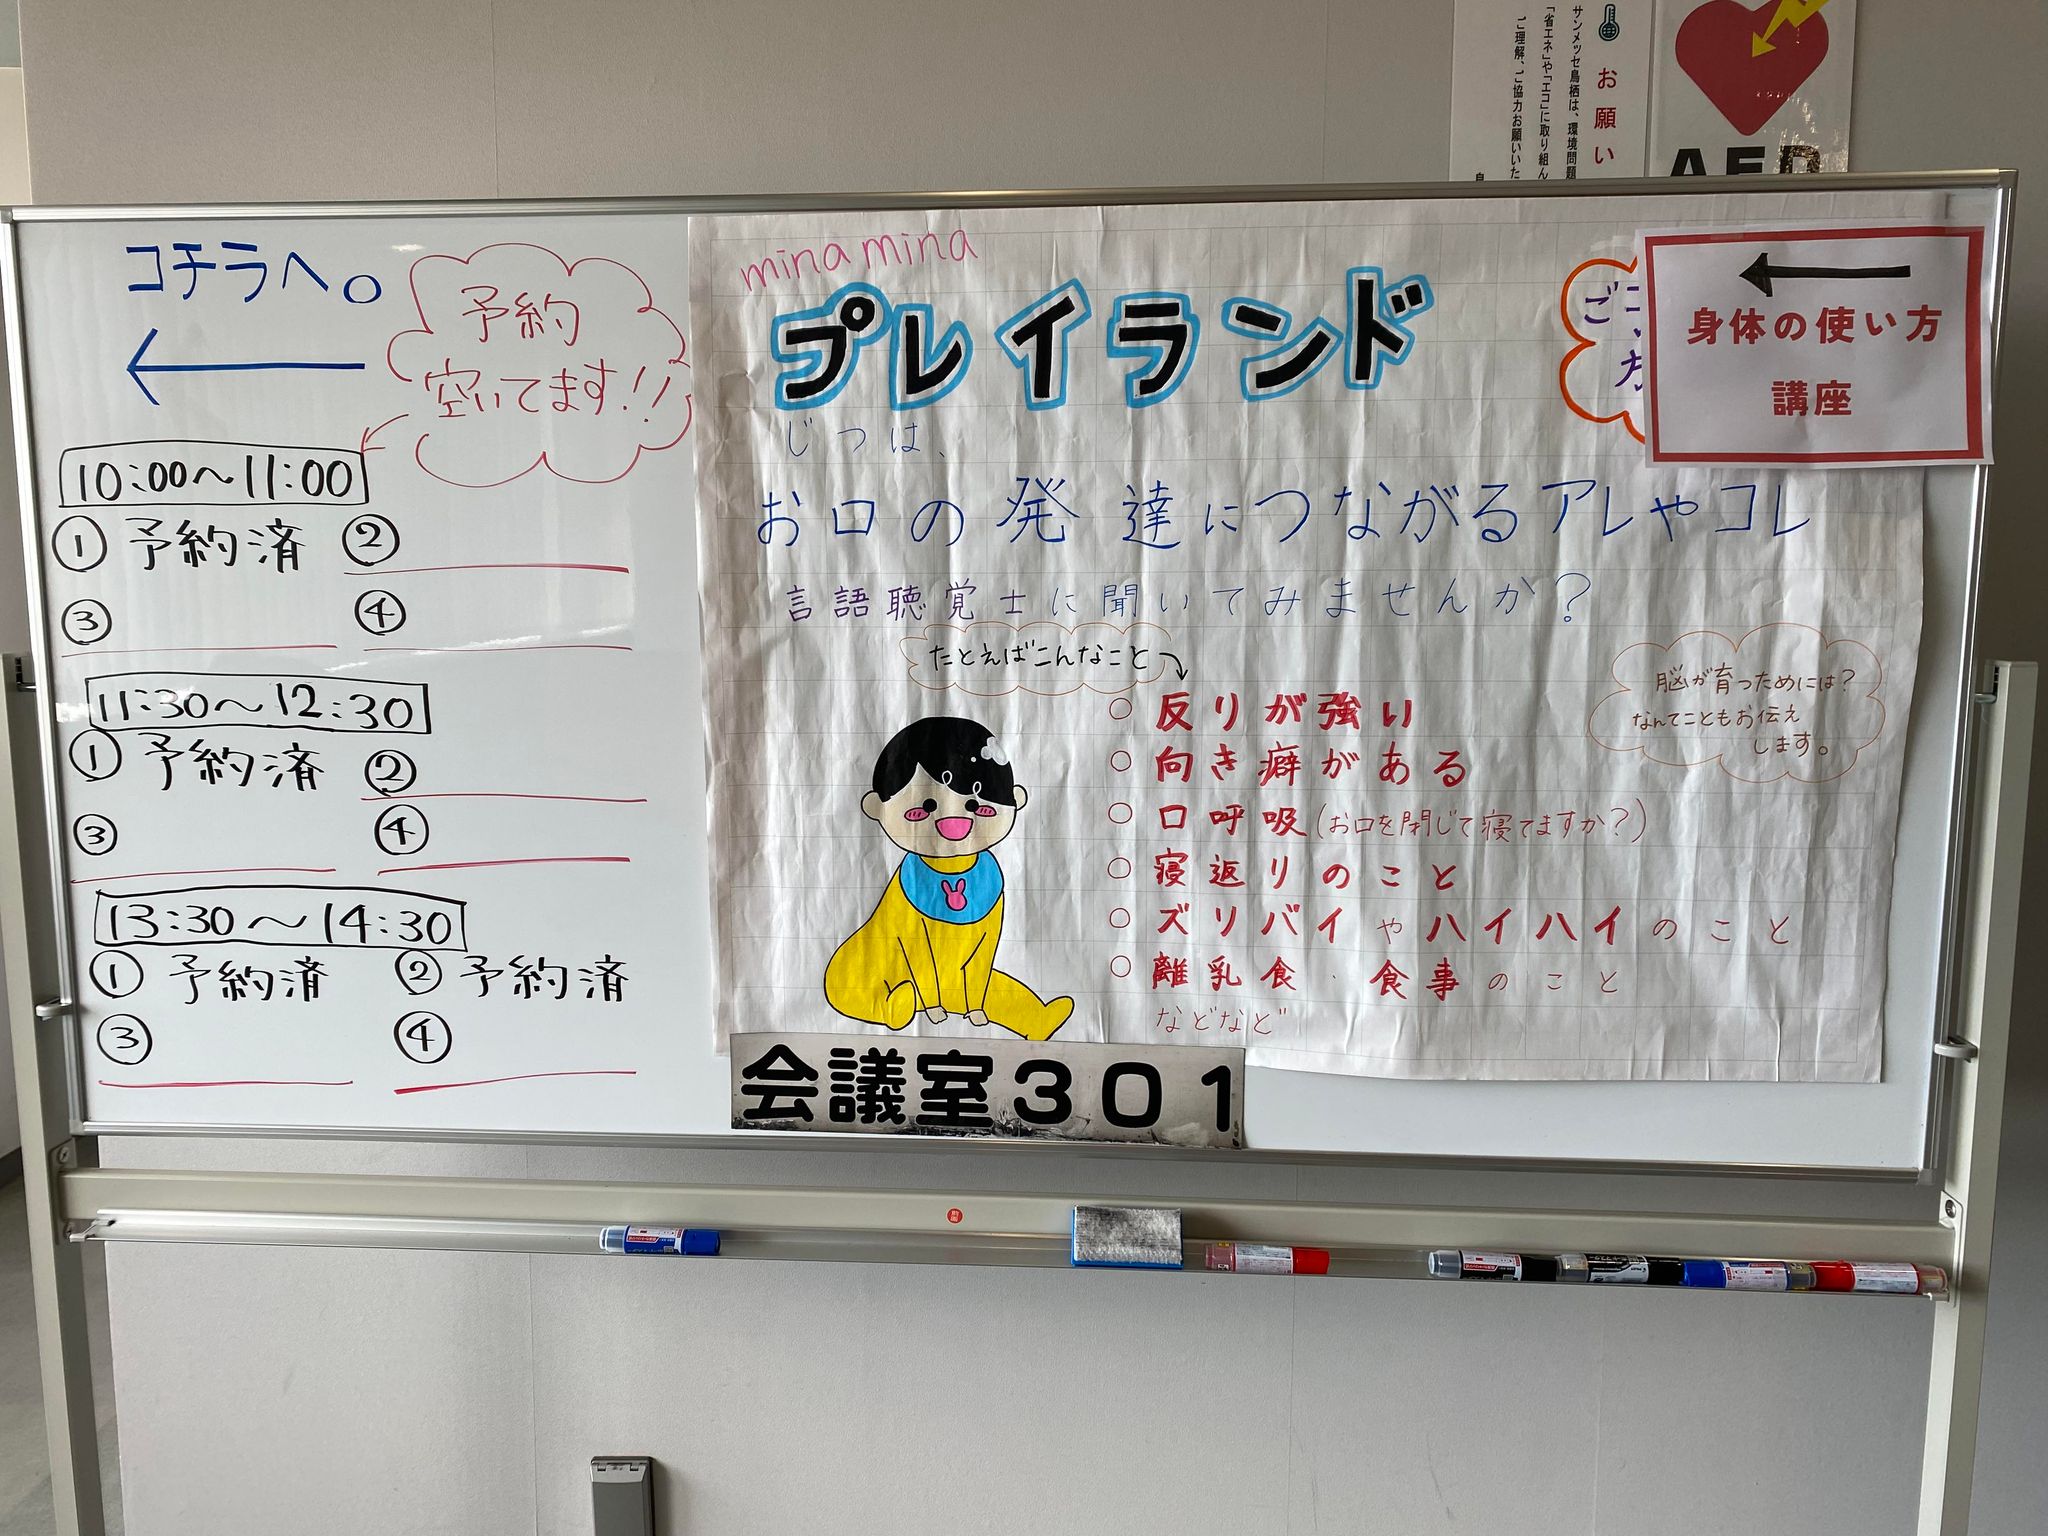 コチラへ。
←
予約
空いてます!!
10:00〜11:00
① 予約済 ②
③ ④
11:30〜12:30
① 予約済 ②
③ ④
13:30〜14:30
① 予約済 ② 予約済
③ ④
mina mina
プレイランド
じつは、
お口の発達につながるアレやコレ
言語聴覚士に聞いてみませんか?
たとえばこんなこと
○ 反りが強い
○ 向き癖がある
○ 口呼吸(お口を閉じて寝てますか?)
○ 寝返りのこと
○ ズリバイやハイハイのこと
○ 離乳食・食事のこと
などなど
脳が育つためには?
なんてこともお伝え
します。
←
身体の使い方
講座
会議室301
お願い
サンメッセ鳥栖は、環境問題
「省エネ」や「エコ」に取り組ん
ご理解、ご協力お願いいた
AED